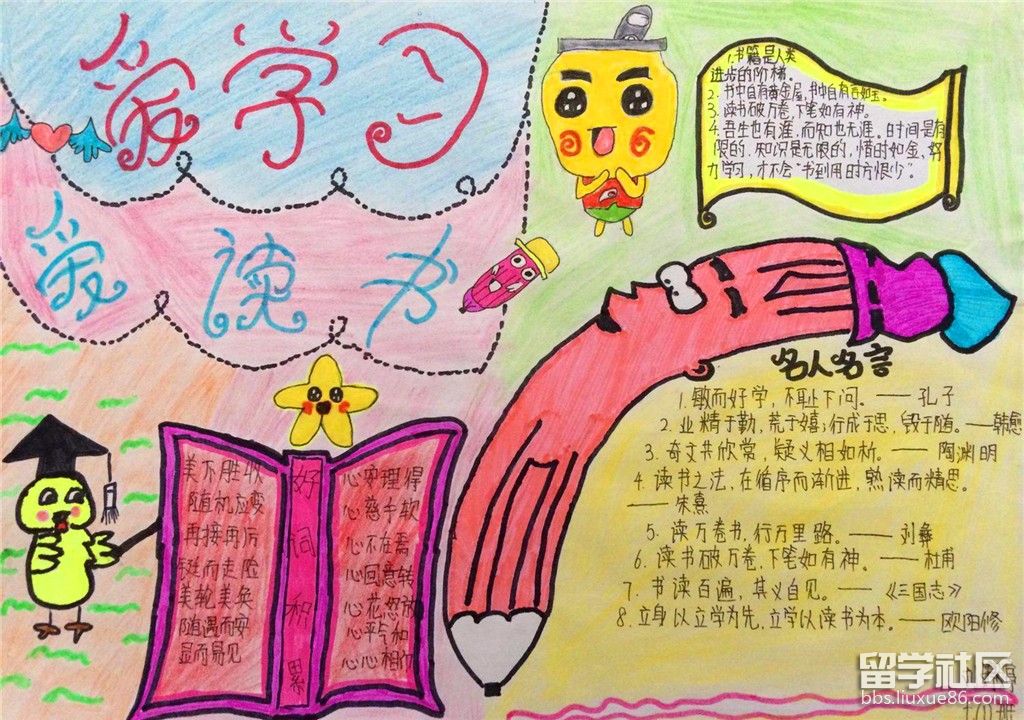 爱学习
爱读书
1.书籍是人类
进步的阶梯。
2.书中自有黄金屋,书中自有言如玉。
3.读书破万卷,下笔如有神。
4.吾生也有涯,而知也无涯。时间是有
限的,知识是无限的,惜时如金、努
力学习,才不会“书到用时方恨少”。
名人名言
1.敏而好学,不耻下问。——孔子
2.业精于勤,荒于嬉;行成于思,毁于随。——韩愈
3.奇文共欣赏,疑义相如析。——陶渊明
4.读书之法,在循序而渐进,熟读而精思。
——朱熹
5.读万卷书,行万里路。——刘彝
6.读书破万卷,下笔如有神。——杜甫
7.书读百遍,其义自见。——《三国志》
8.立身以立学为先,立学以读书为本。——欧阳修
美不胜收
随机应变
再接再厉
铤而走险
美轮美奂
随遇而安
显而易见
好词积累
心安理得
心慈手软
心不在焉
心回意转
心花怒放
心平气和
心心相印
留学社区
bbs.liuxue86.com